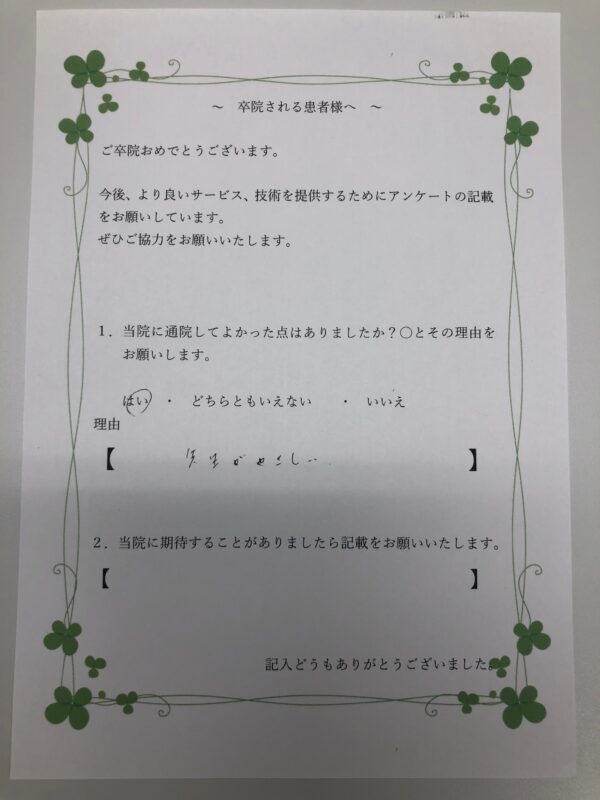 ～ 卒院される患者様へ ～
ご卒院おめでとうございます。
今後、より良いサービス、技術を提供するためにアンケートの記載
をお願いしています。
ぜひご協力をお願いいたします。
１．当院に通院してよかった点はありましたか？〇とその理由を
お願いします。
はい ・ どちらともいえない ・ いいえ
理由
【 先生がやさしい 】
２．当院に期待することがありましたら記載をお願いいたします。
【 】
記入どうもありがとうございました。